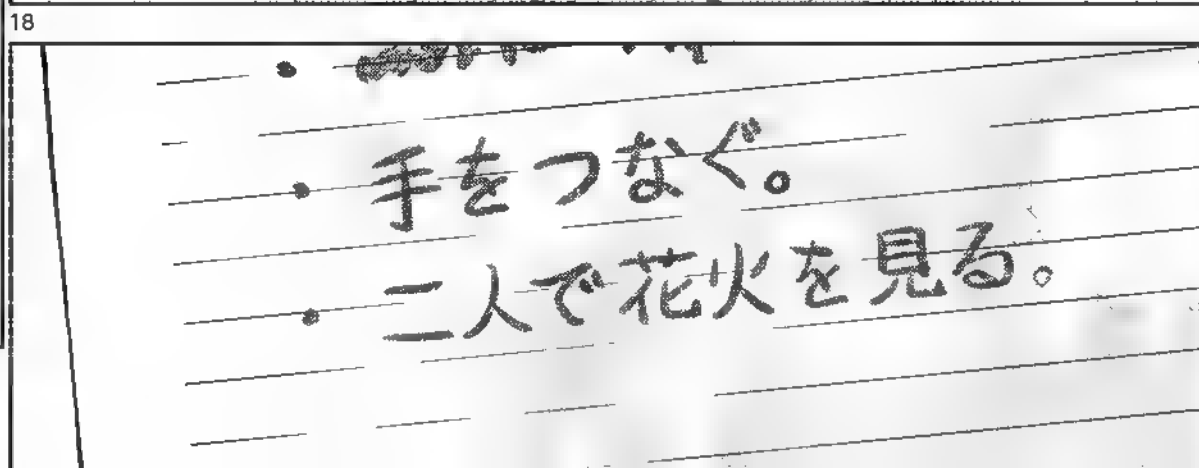 18
・手をつなぐ。
・二人で花火を見る。